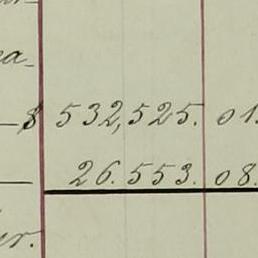 $ 532,525. 01.
26.553. 08.